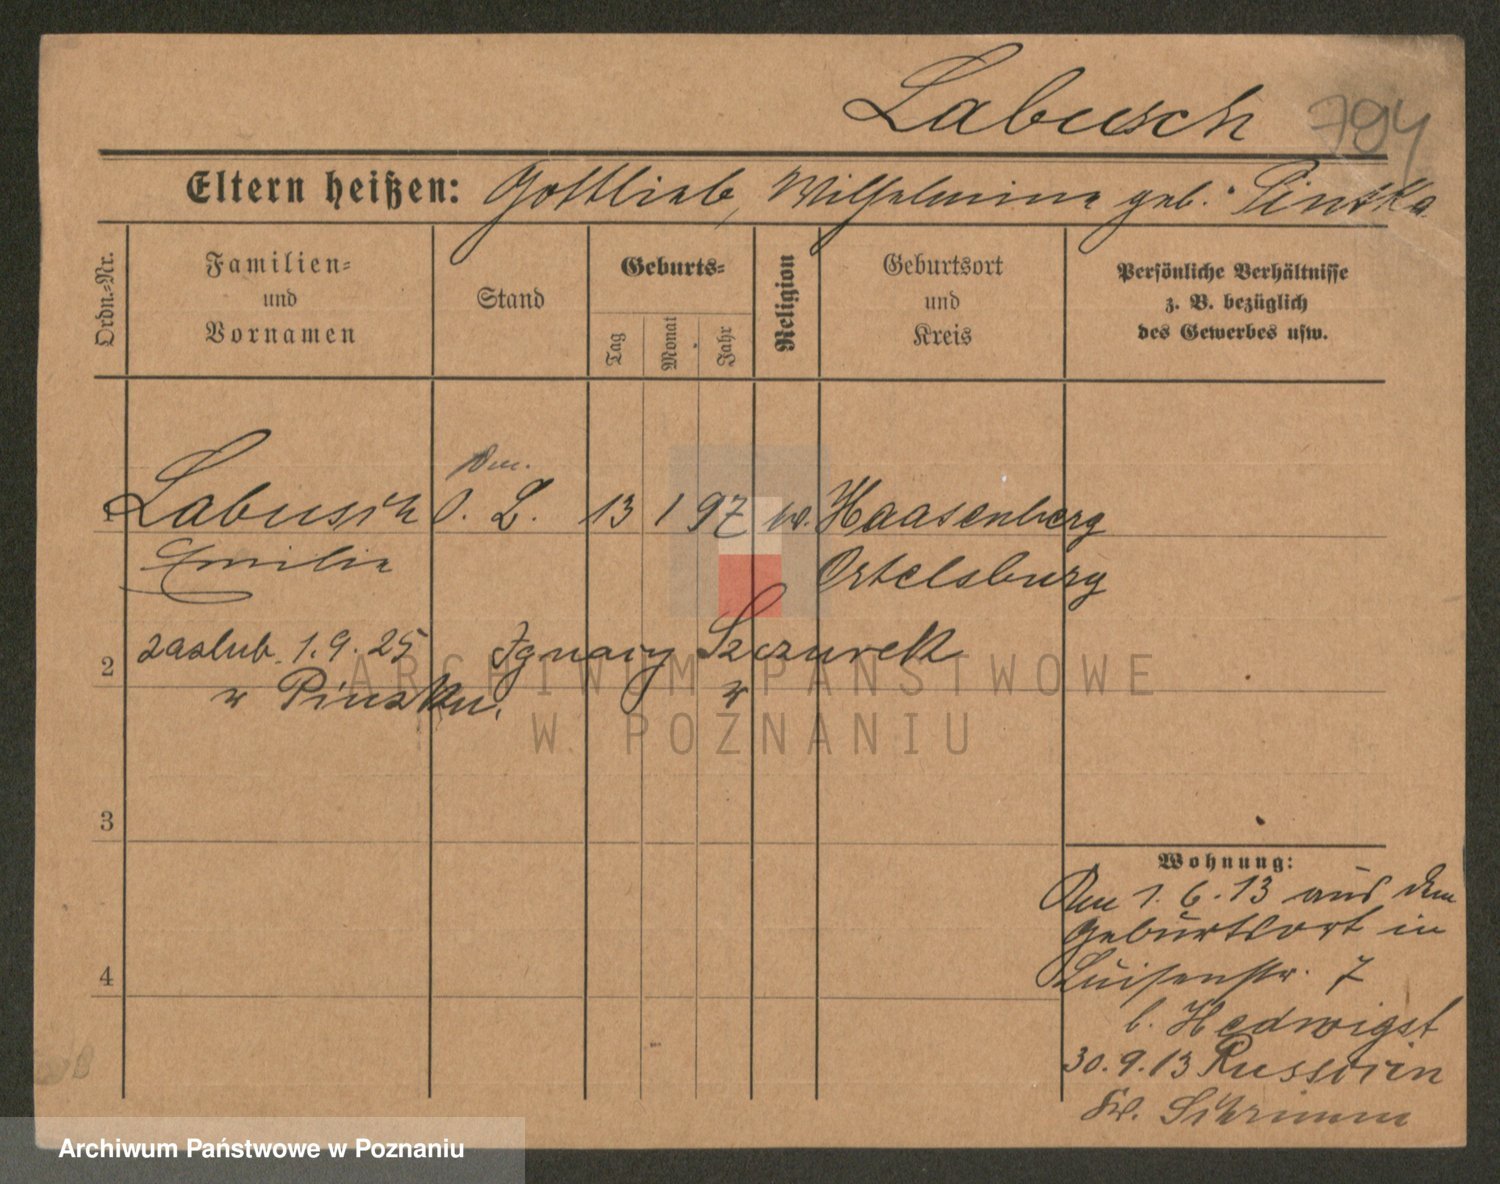 Labusch 794
Eltern heißen: Gottlieb, Wilhelmine geb. Pinska
Ordn.-Nr.
Familien- und Vornamen
Stand
Geburts-
Tag
Monat
Jahr
Religion
Geburtsort und Kreis
Persönliche Verhältnisse
z. B. bezüglich
des Gewerbes usw.
1 Labusch O. L. 13 1 97 Haasenberg
Emilie Ortelsburg
2 zaslub. 1.9.25 Ignacy Szczurek
w Pinsku.
3
Wohnung:
Am 1.6.13 aus dem
Geburtsort in
4
Luisenstr. 7
b. Hedwigst
30.9.13
Schrimm
ARCHIWUM PAŃSTWOWE
W POZNANIU
Archiwum Państwowe w Poznaniu